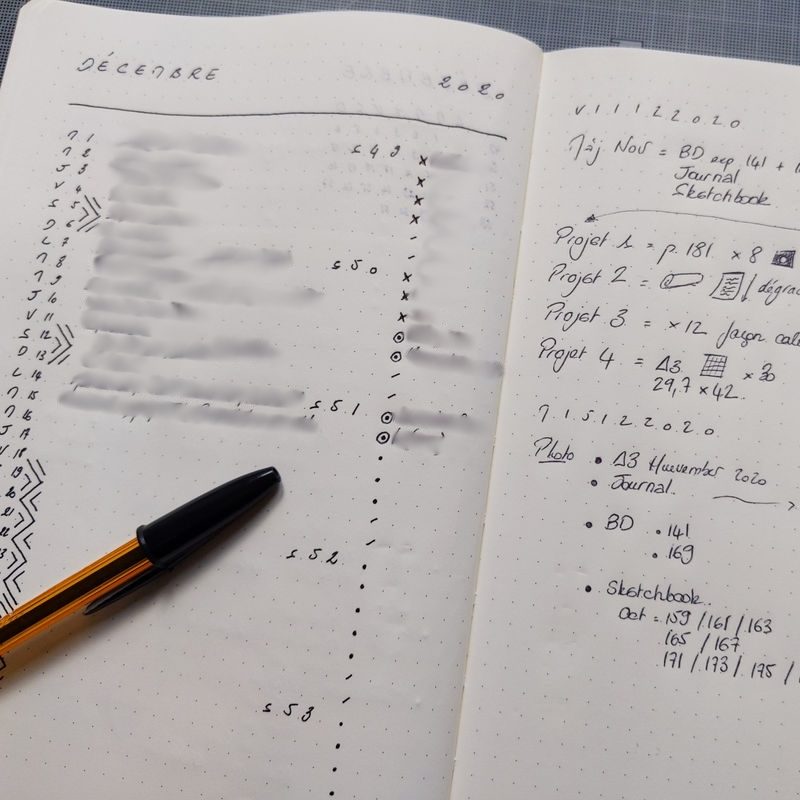 DÉCEMBRE 2020
M 1
M 2
J 3
V 4
S 5
D 6
L 7
M 8
M 9
J 10
V 11
S 12
D 13
L 14
M 15
M 16
J 17
V 18
19
20
21
22
s.49
s.50
s.51
s.52
s.53
V 1 1 1 2 2 0 2 0
Màj Nov = BD exp 141 +
Journal
Sketchbook
Projet 1 = p.181. × 8
Projet 2 =
Projet 3 = ×12 façon
Projet 4 = A3 × 30
29,7 × 42.
M.1.5.1.2.2.0.2.0.
Photo • A3 Huevember 2020
• Journal.
• BD • 141
• 169
• Sketchbook.
Oct = 159 / 161 / 163
165 / 167
171 / 173 / 175 /